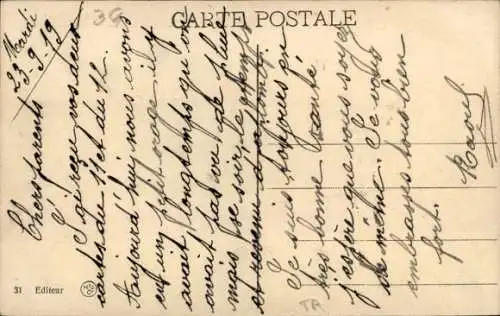 CARTE POSTALE
36
Mardi
23-9-19
Chers parents
J'ai reçu vos deux
cartes du 11 et du 12.
Aujourd'hui nous avons
eu un petit orage il y
avait longtemps qu'on
avait pas vu de pluie
mais ce soir le temps
est revenu
Je suis toujours en
très bonne santé
j'espère que vous soyez
de même. Je vous
embrasse tous bien
fort.
Raoul
31 Editeur
TA